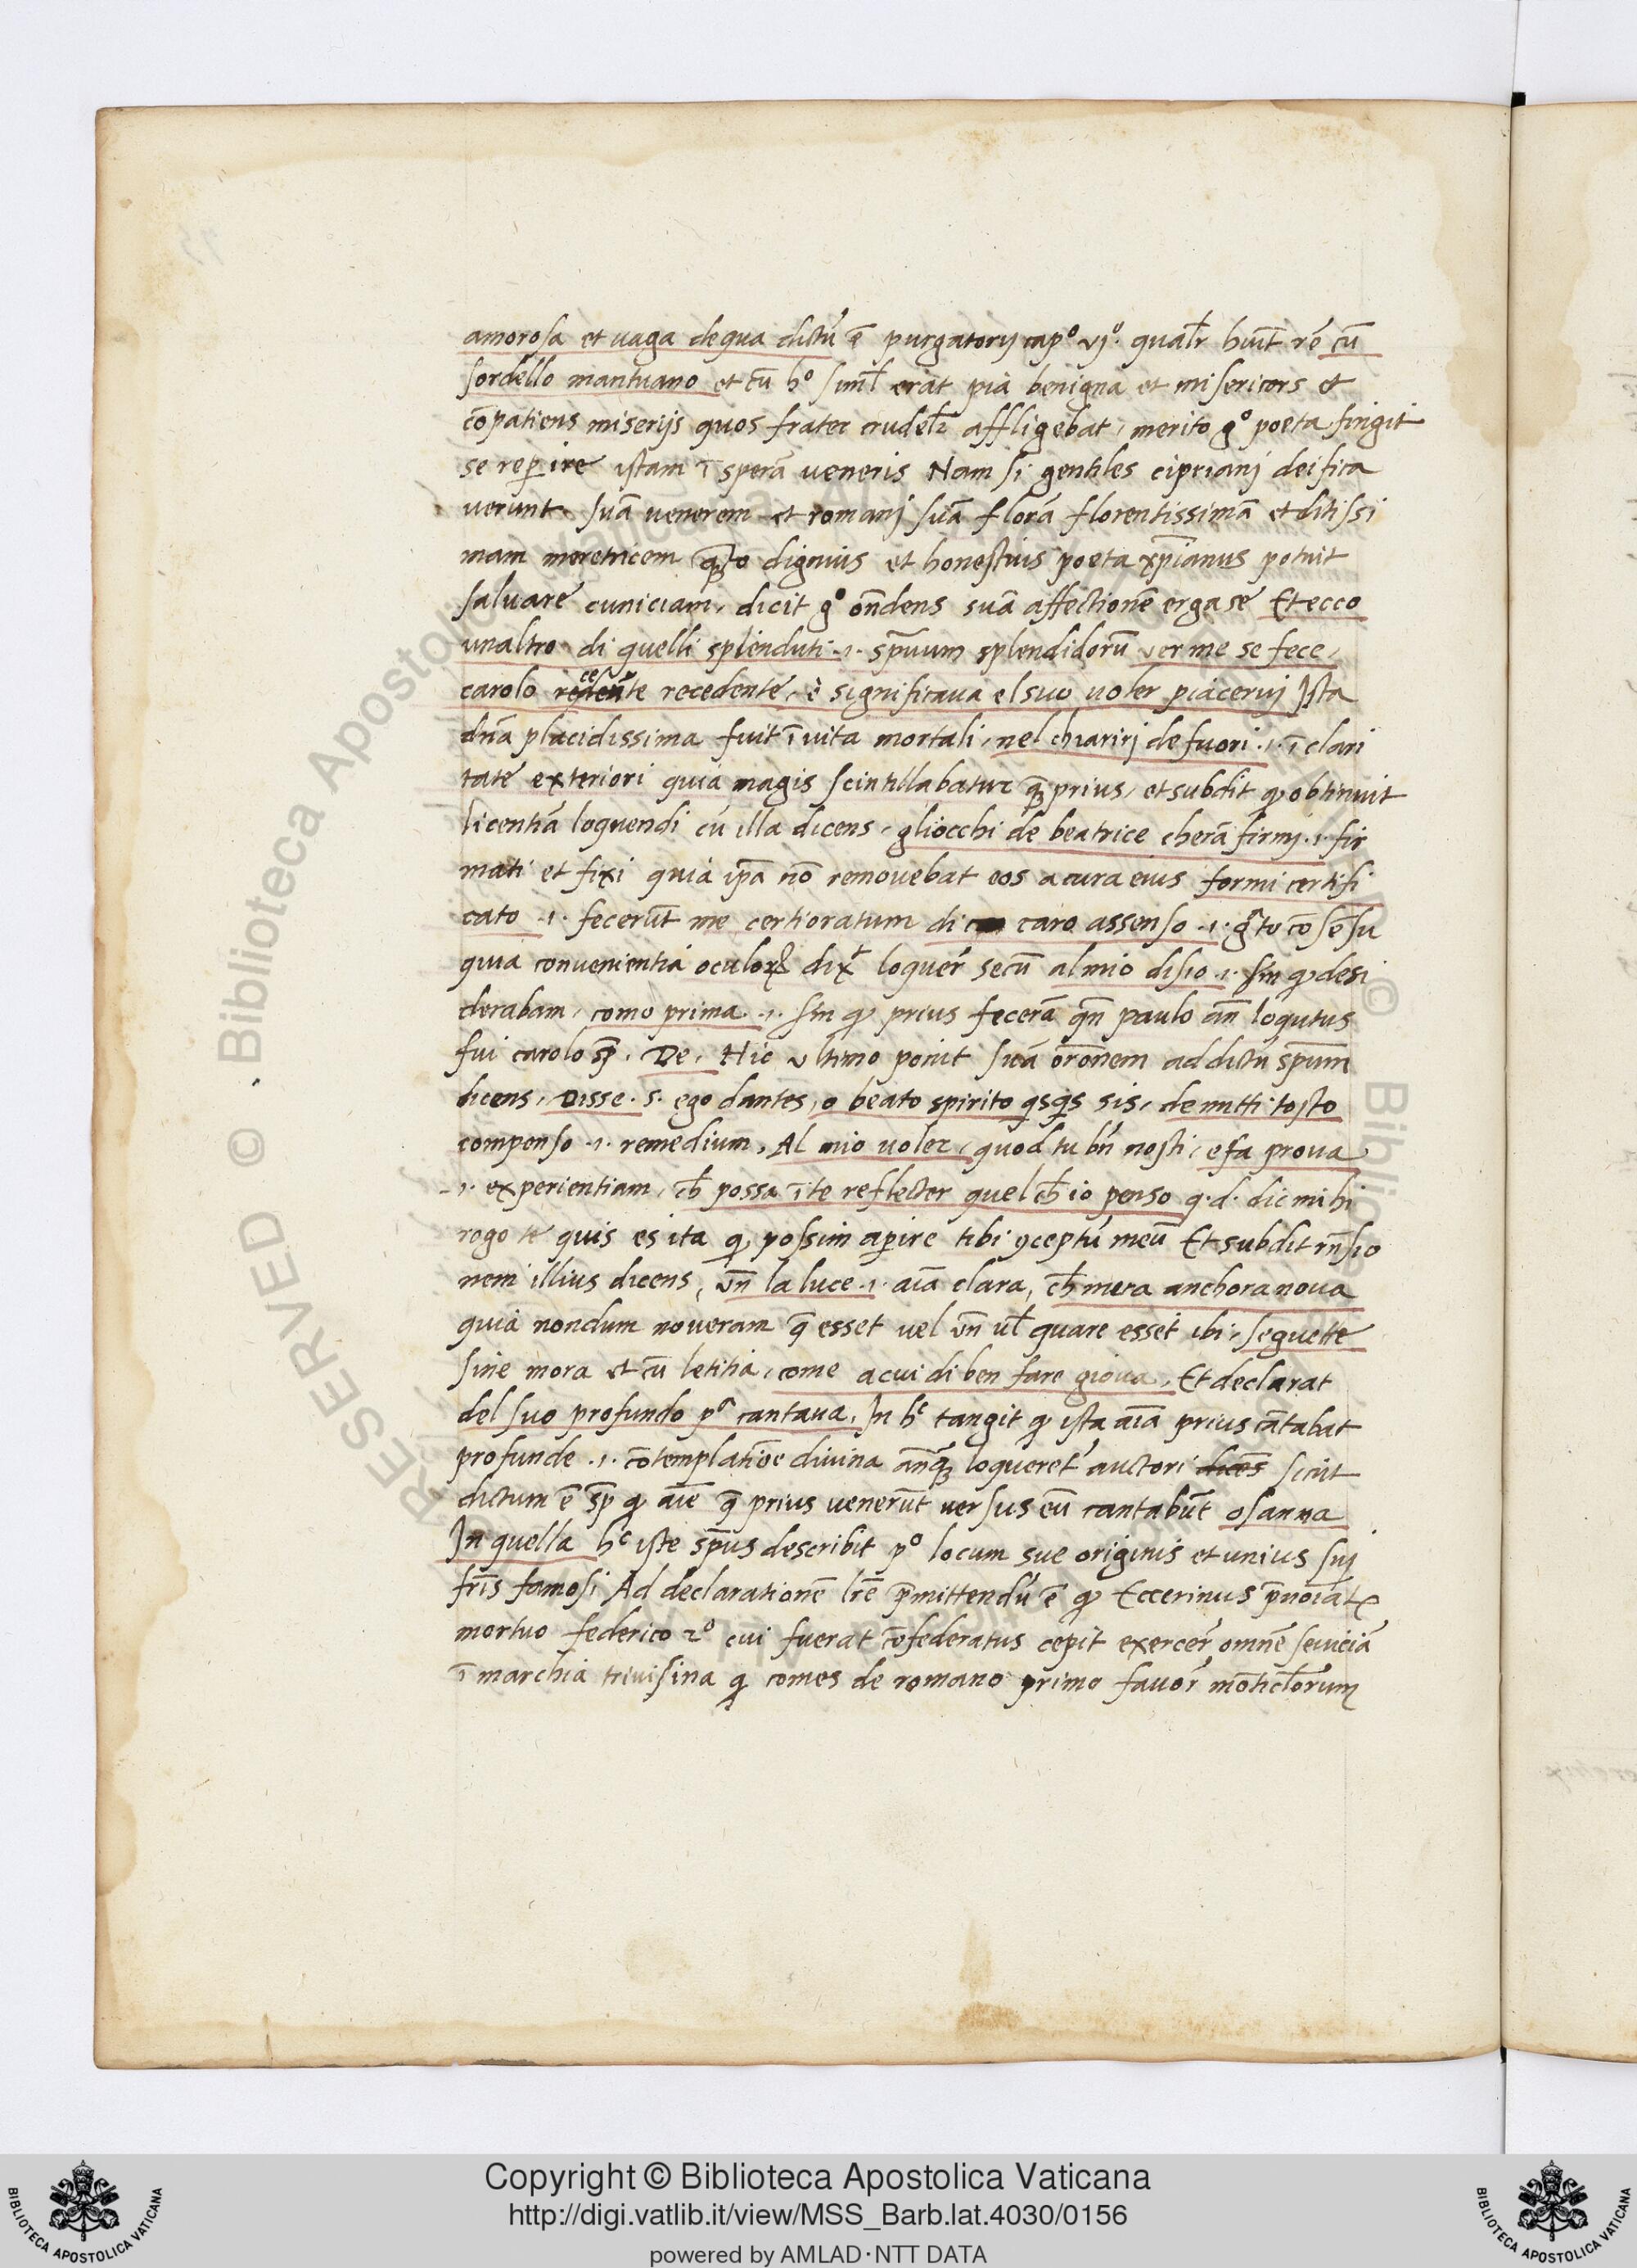 amorosa et uaga de qua dictũ ẽ purgatorij cap° vj°. qualr̃ hũit rẽ cũ
sordello mantuano et cũ h° siml̃ erat pia benigna et misericors et
cõpatiens miserijs quos frater crudelr̃ affligebat, merito g° poeta fingit
se reperire istam ĩ sperã veneris Nam si gentiles ciprianj deifica
verunt suã venerem et romanj suã florã florentissimã et ditissi
mam meretricem quãto dignius et honestius poeta xp̃ianus potuit
saluare cuniciam, dicit g° oñdens suã affectionẽ erga se Et ecco
unaltro di quelli splenduti .1. sp̃uum splendidorũ ver me se fece,
carolo recedẽte recedente, è significaua el suo uoler piacermj Ista
dña placidissima fuit ĩ uita mortali, nel chiarirj de fuori .1. ĩ clari
tate exteriori quia magis scintillabatur quã prius, et subdit ꝙ obtinuit
licentiã loquendi cũ illa dicens, gliocchi de beatrice cherã firmj .1. fir
mati et fixi quia ip̃a nõ remouebat eos a cura eius formi certifi
cato .1. fecerũt me certioratum di caro assenso .1. gᵃto cõsẽsu
quia convenientia oculoꝝ dixᵗ loquer̃ secũ al mio disio .1. sm̃ ꝙ desi
derabam, como prima .1. sm̃ ꝙ prius fecerã qñ paulo añ loqutus
fui carolo sp̃. De. Hic vltimo ponit suã orõnem ad dictũ sp̃um
dicens, Disse. s. ego dantes, o beato spirito qͥsqͥs sis, de mitti tosto
compenso .1. remedium, Al mio uoler, quod tu bñ nosti, e fa proua
.1. experientiam, ch̃ possa ĩ te reflecter quel ch̃ io penso q.d. dic mihi
rogo te quis es ita ꝙ possim aperire tibi ꝯceptũ meũ Et subdit rñsio
nem illius dicens, vñ la luce .1. aĩa clara, ch̃ mera anchora noua
quia nondum noueram q̃ esset uel vñ ul̃ quare esset ibi, seguette
sine mora et cũ letitia, come a cui di ben fare gioua, Et declarat
del suo profundo pᵃ cantaua, In hᶜ tangit ꝙ ista aĩa prius cãtabat
profunde .1. cõtemplatiõe diuina añqȝ loqueret᷑ auctori dicẽs sicut
dictum ẽ sp̃ ꝙ aĩe q̃ prius venerũt versus eũ cantabũt osanna
In quella hᶜ iste sp̃us describit p° locum sue originis et unius suj
fr̃is famosi Ad declarationẽ lr̃e p̃mittendũ ẽ ꝙ Eccerinus p̃noĩatꝰ
mortuo federico 2° cui fuerat cõfederatus cepit exercer̃ omnẽ seuiciã
ĩ marchia triuisina ꝙ comes de romano primo fauor̃ mõticl̃orum
Copyright © Biblioteca Apostolica Vaticana
http://digi.vatlib.it/view/MSS_Barb.lat.4030/0156
powered by AMLAD·NTT DATA
BIBLIOTECA APOSTOLICA VATICANA
BIBLIOTECA APOSTOLICA VATICANA